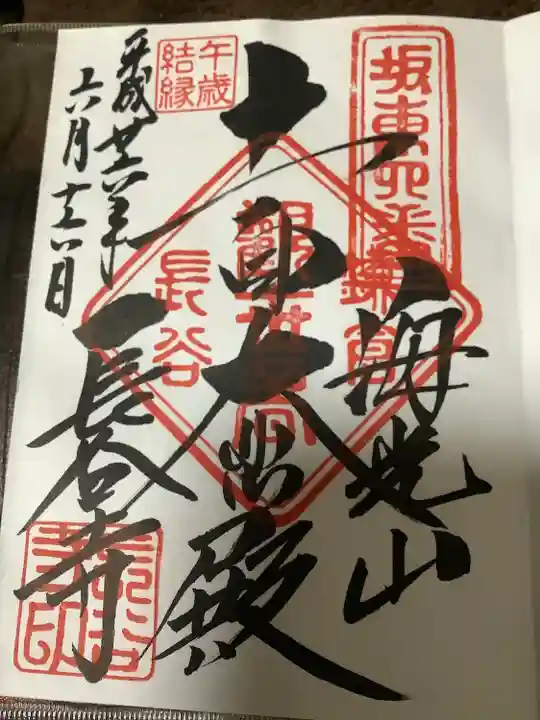 坂東四番
海光山
鎌倉
十一面大悲殿
觀世音
長谷
午歳
結縁
平成廿六年
六月十六日
長谷寺
長谷寺印